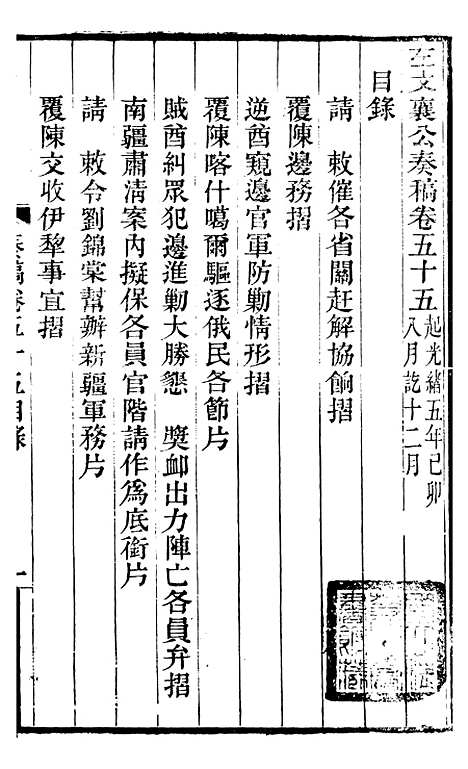 左文襄公奏稿卷五十五 起光緒五年己卯
八月訖十二月
目錄
請 敕催各省關赶解協餉摺
覆陳邊務摺
逆酋窺邊官軍防勦情形摺
覆陳喀什噶爾驅逐俄民各節片
賊酋糾眾犯邊進勦大勝懇 獎卹出力陣亡各員弁摺
南疆肅清案內擬保各員官階請作爲底銜片
請 敕令劉錦棠幫辦新疆軍務片
覆陳交收伊犂事宜摺
奏稿卷五十五目錄
一